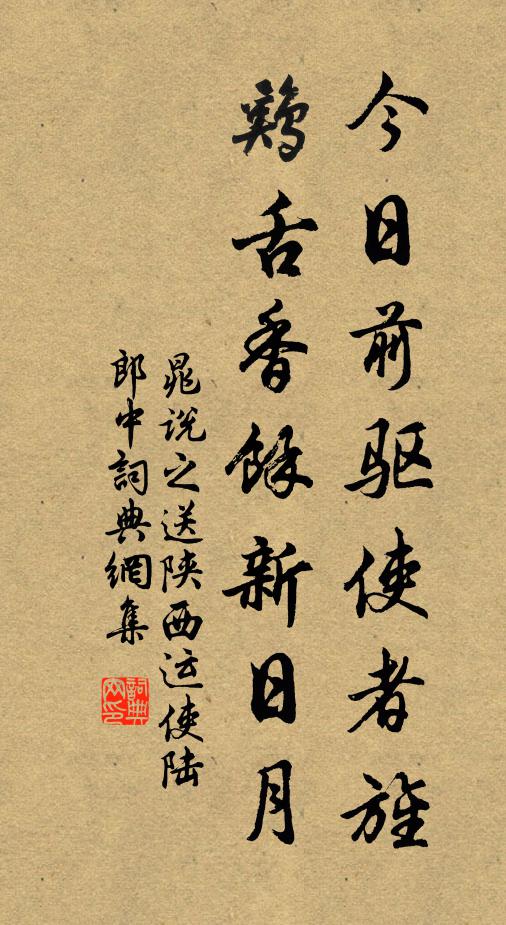 今日前驱使者旌
鷄舌香餘新日月
晁說之送陕西运使陆
郎中詞典網集
詞典
网印